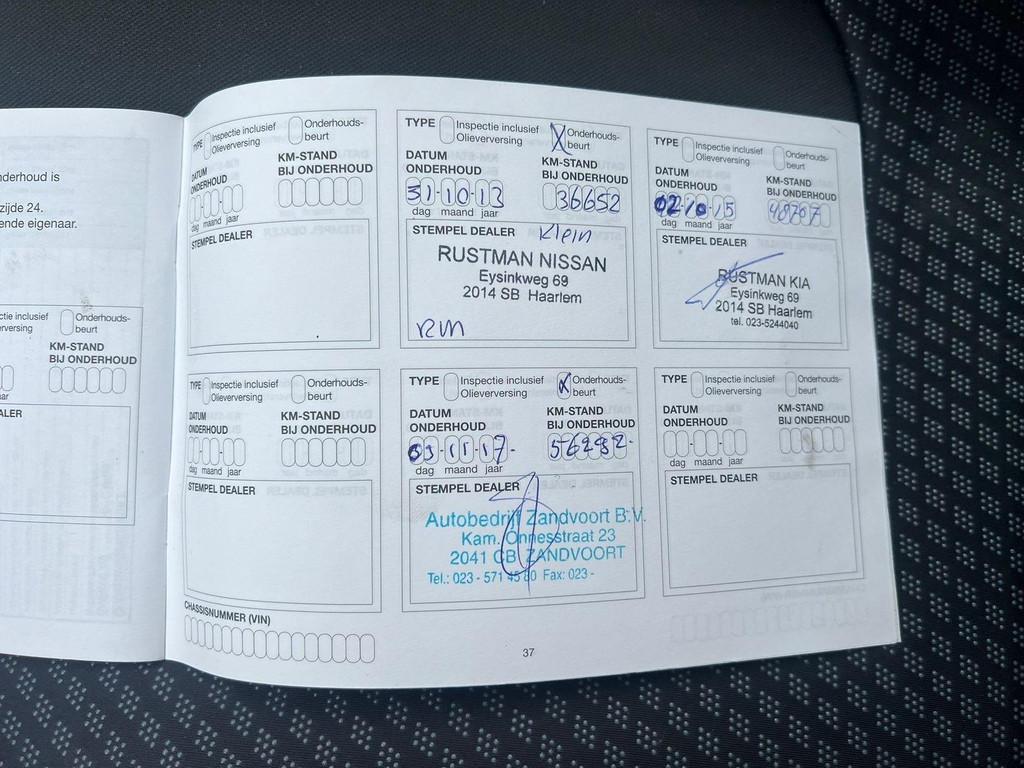 nderhoud is
zijde 24.
ende eigenaar.
ctie inclusief Onderhouds-
rversing beurt
KM-STAND
BIJ ONDERHOUD
ar
ALER
TYPE Inspectie inclusief Olieverversing Onderhouds-beurt
DATUM ONDERHOUD KM-STAND BIJ ONDERHOUD
dag maand jaar
STEMPEL DEALER
TYPE Inspectie inclusief Olieverversing X Onderhouds-beurt
DATUM ONDERHOUD KM-STAND BIJ ONDERHOUD
31-10-13 36652
dag maand jaar
STEMPEL DEALER Klein
RUSTMAN NISSAN
Eysinkweg 69
2014 SB Haarlem
RM
TYPE Inspectie inclusief Olieverversing Onderhouds-beurt
DATUM ONDERHOUD KM-STAND BIJ ONDERHOUD
02 10 15 48707
dag maand jaar
STEMPEL DEALER
RUSTMAN KIA
Eysinkweg 69
2014 SB Haarlem
tel. 023-5244040
TYPE Inspectie inclusief Olieverversing Onderhouds-beurt
DATUM ONDERHOUD KM-STAND BIJ ONDERHOUD
dag maand jaar
STEMPEL DEALER
TYPE Inspectie inclusief Olieverversing X Onderhouds-beurt
DATUM ONDERHOUD KM-STAND BIJ ONDERHOUD
03-11-17- 56282-
dag maand jaar
STEMPEL DEALER
Autobedrijf Zandvoort B.V.
Kam. Onnesstraat 23
2041 CB ZANDVOORT
Tel.: 023 - 571 45 80 Fax: 023 -
TYPE Inspectie inclusief Olieverversing Onderhouds-beurt
DATUM ONDERHOUD KM-STAND BIJ ONDERHOUD
dag maand jaar
STEMPEL DEALER
CHASSISNUMMER (VIN)
37